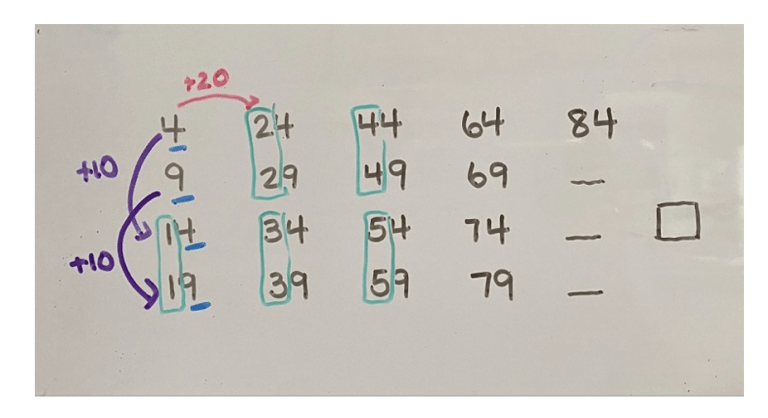 +20
4 24 44 64 84
+10 9 29 49 69 __
14 34 54 74 __
+10 19 39 59 79 __